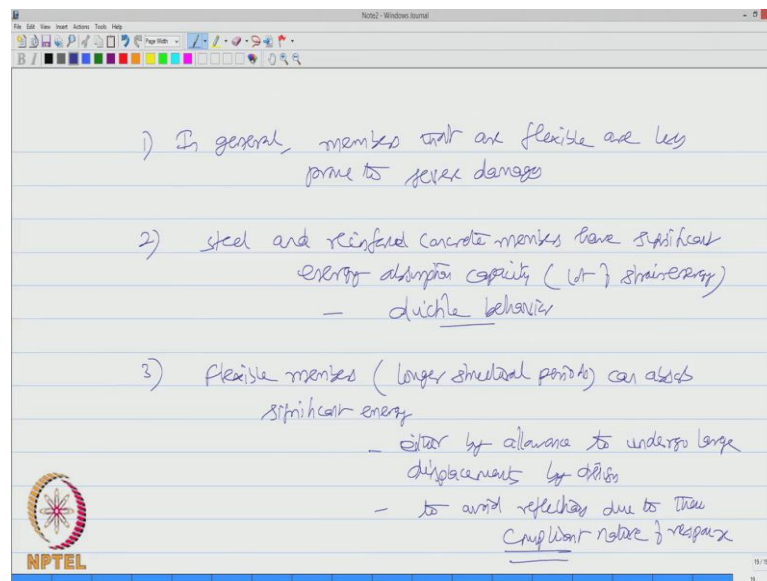 Note2 - Windows Journal
File Edit View Insert Actions Tools Help
Page Width
B I
1) In general, members that are flexible are less
prone to sever damages
2) steel and reinforced concrete members have significant
energy absorption capacity (lot of strain energy)
- ductile behavior
3) flexible members (longer structural periods) can absorb
significant energy
- either by allowance to undergo large
displacements by design
- to avoid reflections due to their
compliant nature of response
NPTEL
19/19
19